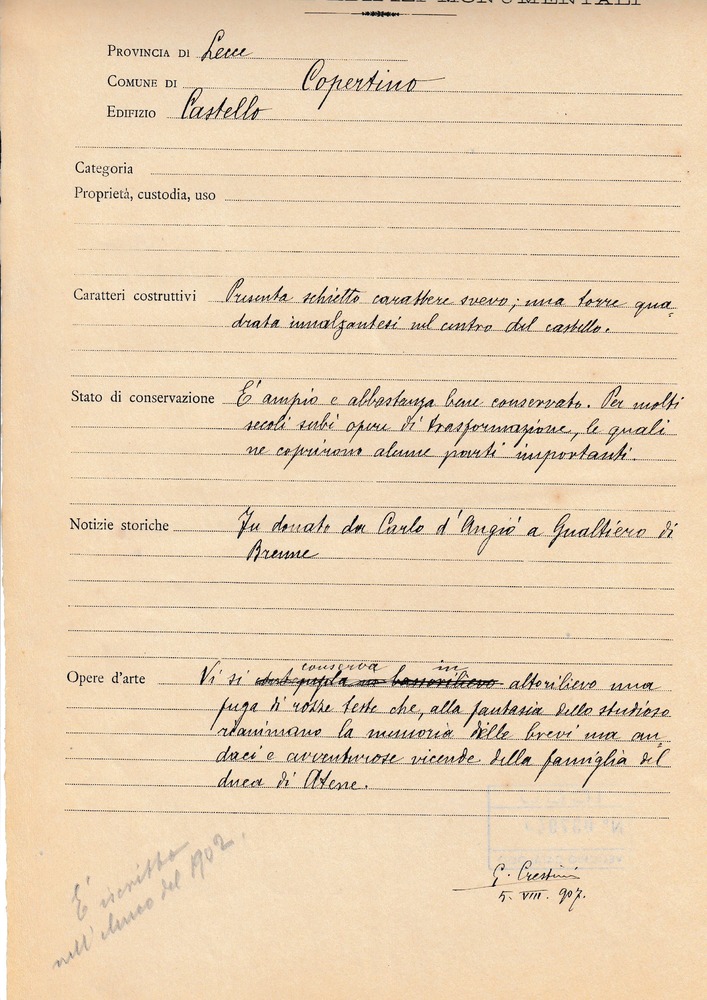 EDIFICI MONUMENTALI
PROVINCIA DI Lecce
COMUNE DI Copertino
EDIFIZIO Castello
Categoria
Proprietà, custodia, uso
Caratteri costruttivi Presenta schietto carattere svevo; una torre qua-
drata innalzantesi nel centro del castello.
Stato di conservazione È ampio e abbastanza bene conservato. Per molti
secoli subì opere di trasformazione, le quali
ne coprirono alcune parti importanti.
Notizie storiche Fu donato da Carlo d'Angiò a Gualtiero di
Brenne
conserva in
Opere d'arte Vi si un bassorilievo altorilievo una
fuga di rozze teste che, alla fantasia dello studioso
rianimano la memoria delle brevi ma au-
daci e avventurose vicende della famiglia del
duca di Atene.
È iscritto
nell'elenco del 1902.
G. Crestini
5. VIII. 907.